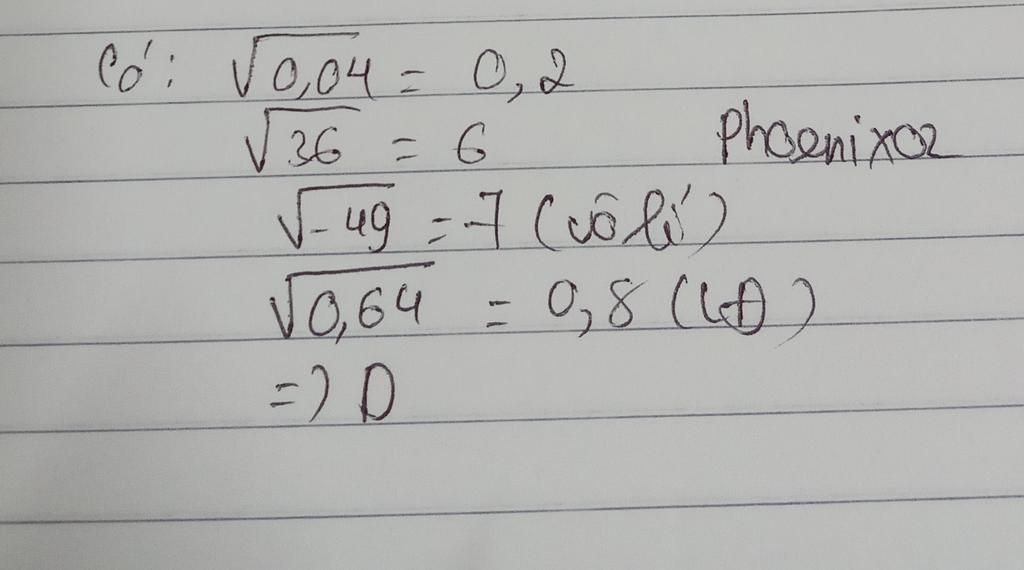 Có: √0,04 = 0,2
√36 = 6
Phoenixoz
√-49 = -7 (vô lí)
√0,64 = 0,8 (LĐ)
=) D